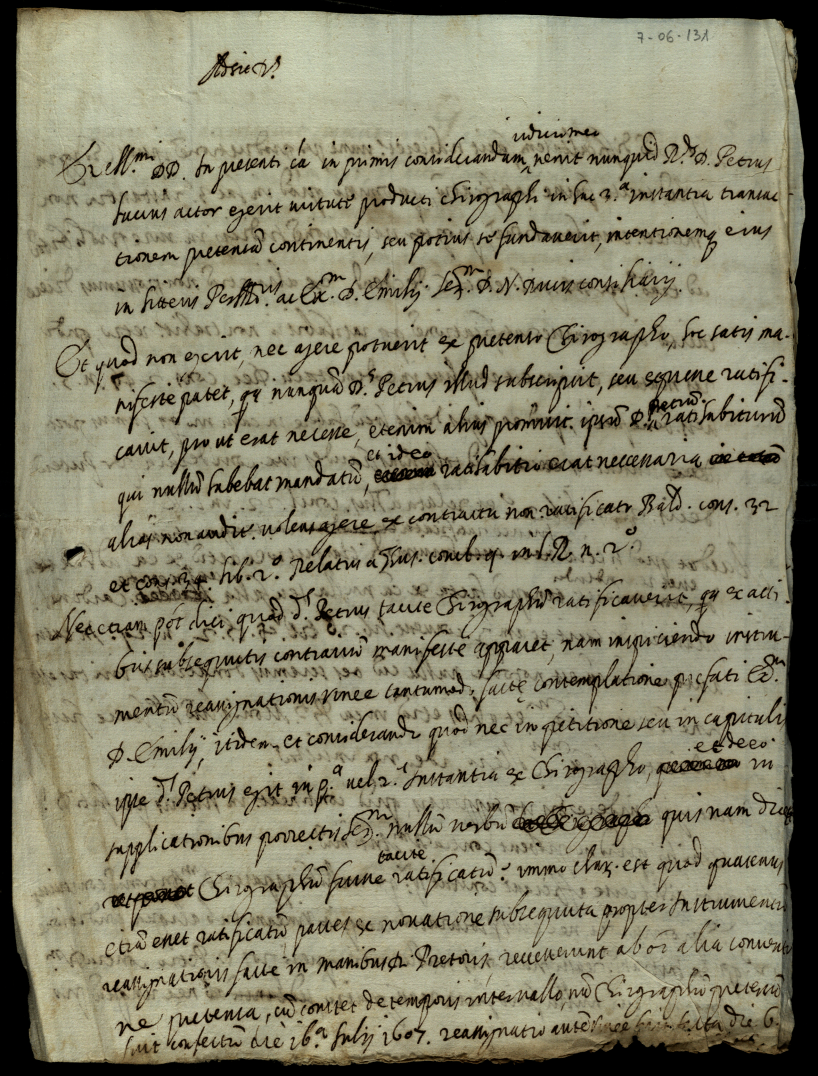 7-06-131
iudicio meo
Ill.mi DD. In presenti ca in primis considerandum, venit nunquid R.dus D. Petrus
actor egerit virtute producti Chirographi in hac 2.a instantia transac
tionem pretensam continentis, seu potius se fundaverit, intentionemq eius
in litteris ac Ex.m D. Emilij Ser.m D. N. Ducis consiliarij.
Et quod non egerit, nec agere potuerit ex pretenso Chirographo, hoc satis ma-
nifeste patet, qa nunquam D.s Petrus illud subscripsit, seu expresse ratifi-
cavit, pro ut erat necesse, etenim alius promisit ipsum D. Petrum ratihabiturum
qui nullum habebat mandatum, et ideo ratihabitio erat necessaria
alias non audit.r volens agere ex contractu non ratificato Bald. cons. 32
lib. 2.o Relatus a cons. q. in l. n. 2.o
Nec etiam pot dici quod d.s Petrus tacite Chirographum ratificaverit, qa ex acti-
bus subsequutis contrarium manifeste apparet, nam inspiciendo instru-
mentum reassignationis vinee factae contemplatione prefati Ex.m
D. Emilij, itidem et considerando quod nec in petitione seu in capitulis
ipse d.s Petrus egit in p.a vel 2.a Instantia ex Chirographo, et ideo in
supplicationibus porrectis Ser.m nullum verbum quis nam dicet
Chirographum fuisse tacite ratificatum? immo clar. est quod quatenus
etiam esset ratificatum partes ex novatione subsequuta propter Instrumentum
reassignationis factae in manibus D. Pretoris recesserunt ab oi alia conventio
ne pretensa, cum constet de temporis intervallo, nam Chirographum pretensum
fuit confectum die 16.a Julij 1607. reassignatio autem vinee fuit facta die 6.